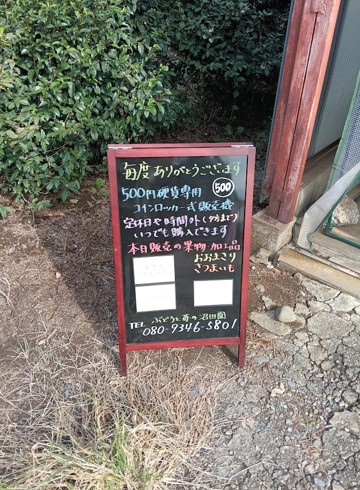 毎度ありがとうございます
500円硬貨専用 500
コインロッカー式販売機
定休日や時間外(夕方まで)
いつでも購入できます
本日販売の果物・加工品
おおまさり
さつまいも
ぶどうと苺の沼田園
TEL 080-9346-5801